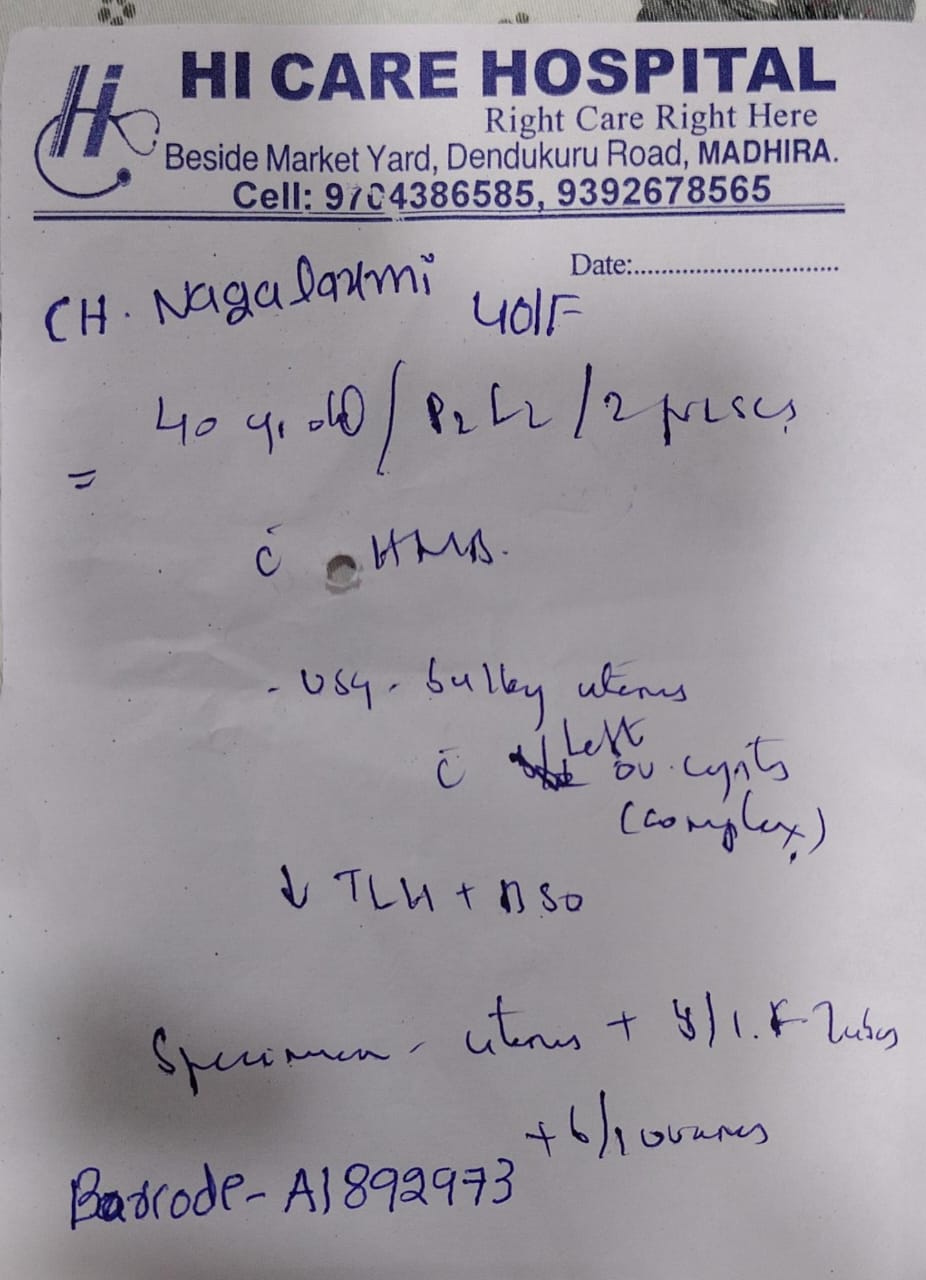 Hi
HI CARE HOSPITAL
Right Care Right Here
Beside Market Yard, Dendukuru Road, MADHIRA.
Cell: 9704386585, 9392678565
Date:
CH. Nagalaxmi
40/F
40 yr old / P2L2 / 2 prLSCS
c̄ HMB.
- USG - bulky uterus
c̄ Left ov. cysts
(complex)
↓ TLH + BSO
Specimen - uterus + B/l. F Tubes
+ b/l ovaries
Barcode - A1892973